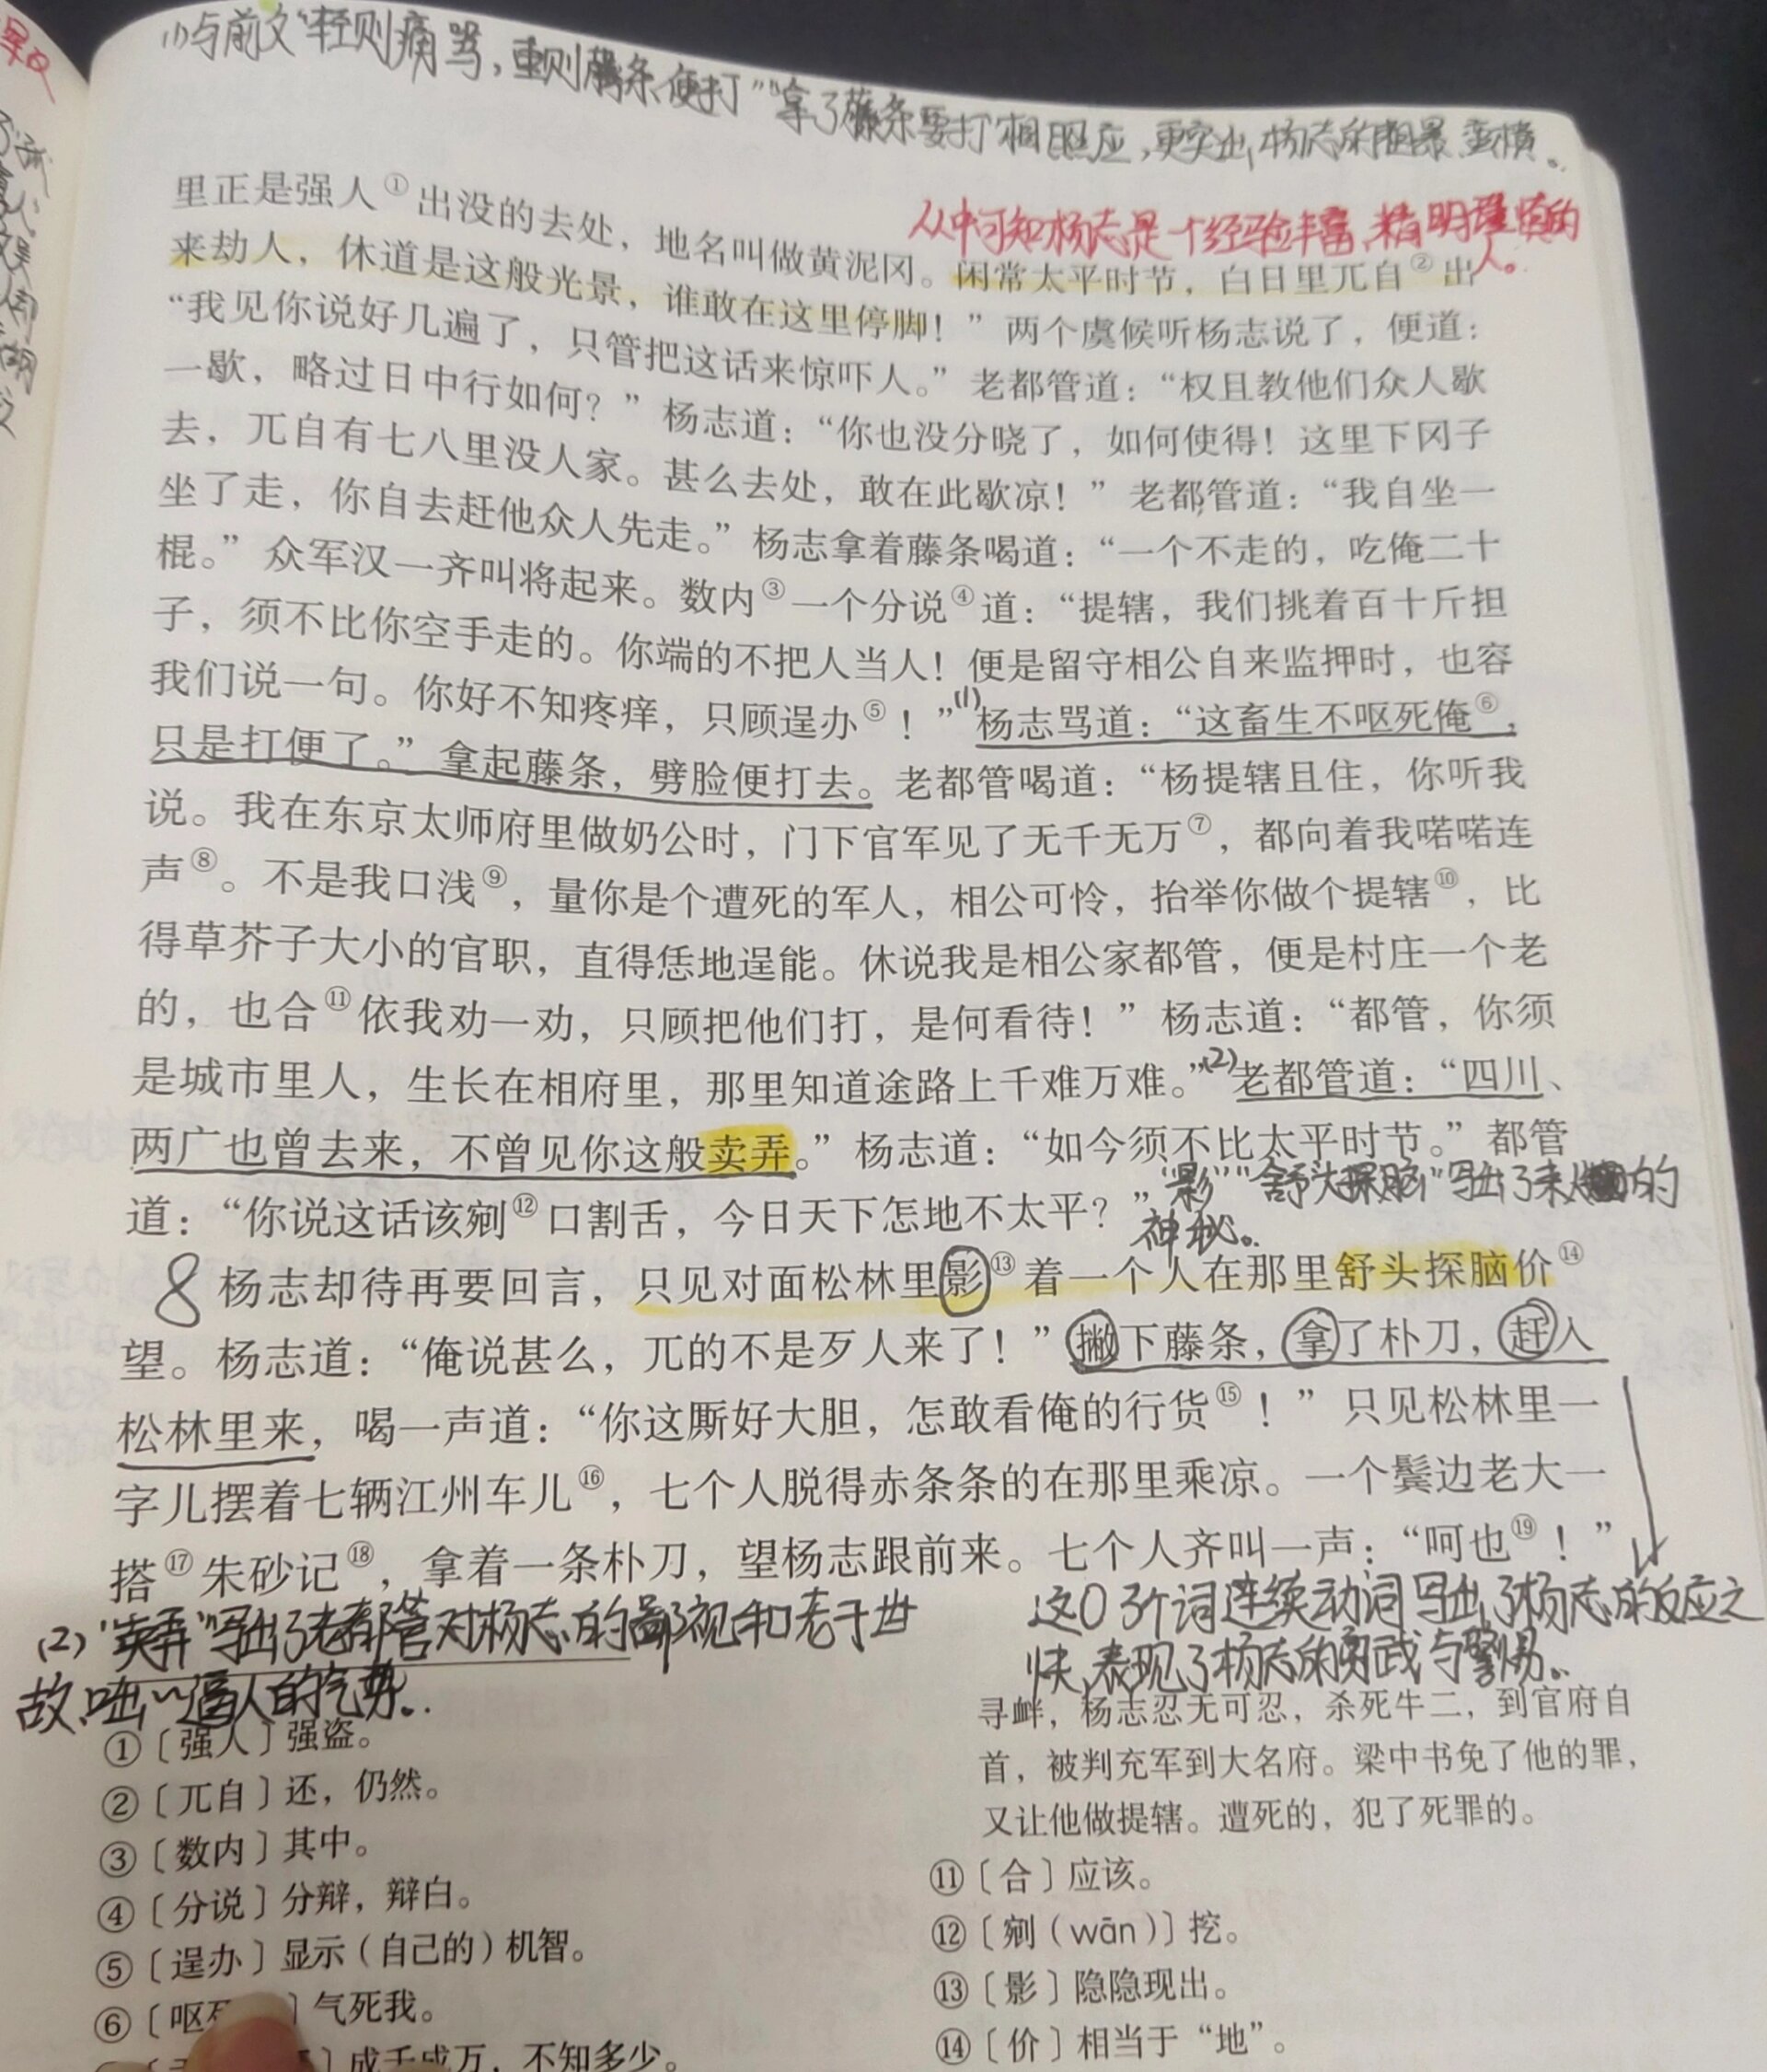 (1)与前文“轻则痛骂，重则藤条便打”“拿了藤条要打”相照应，更突出杨志的粗暴蛮横。
从中可知杨志是一个经验丰富、精明谨慎的
人。
里正是强人①出没的去处，地名叫做黄泥冈。闲常太平时节，白日里兀自②出
来劫人，休道是这般光景，谁敢在这里停脚！”两个虞候听杨志说了，便道：
“我见你说好几遍了，只管把这话来惊吓人。”老都管道：“权且教他们众人歇
一歇，略过日中行如何？”杨志道：“你也没分晓了，如何使得！这里下冈子
去，兀自有七八里没人家。甚么去处，敢在此歇凉！”老都管道：“我自坐一
坐了走，你自去赶他众人先走。”杨志拿着藤条喝道：“一个不走的，吃俺二十
棍。”众军汉一齐叫将起来。数内③一个分说④道：“提辖，我们挑着百十斤担
子，须不比你空手走的。你端的不把人当人！便是留守相公自来监押时，也容
我们说一句。你好不知疼痒，只顾逞办⑤！”(1)杨志骂道：“这畜生不呕死俺⑥，
只是打便了。”拿起藤条，劈脸便打去。老都管喝道：“杨提辖且住，你听我
说。我在东京太师府里做奶公时，门下官军见了无千无万⑦，都向着我喏喏连
声⑧。不是我口浅⑨，量你是个遭死的军人，相公可怜，抬举你做个提辖⑩，比
得草芥子大小的官职，直得恁地逞能。休说我是相公家都管，便是村庄一个老
的，也合⑪依我劝一劝，只顾把他们打，是何看待！”杨志道：“都管，你须
是城市里人，生长在相府里，那里知道途路上千难万难。”(2)老都管道：“四川、
两广也曾去来，不曾见你这般卖弄。”杨志道：“如今须不比太平时节。”都管
道：“你说这话该剜⑫口割舌，今日天下怎地不太平？”
“影”“舒头探脑”写出了来人的
神秘。
8 杨志却待再要回言，只见对面松林里影⑬着一个人在那里舒头探脑价⑭
望。杨志道：“俺说甚么，兀的不是歹人来了！”撇下藤条，拿了朴刀，赶入
松林里来，喝一声道：“你这厮好大胆，怎敢看俺的行货⑮！”只见松林里一
字儿摆着七辆江州车儿⑯，七个人脱得赤条条的在那里乘凉。一个鬓边老大一
搭⑰朱砂记⑱，拿着一条朴刀，望杨志跟前来。七个人齐叫一声：“呵也⑲！”
(2)“卖弄”写出了老都管对杨志的鄙视和老于世
故、咄咄逼人的气势。
这3个词连续动词写出了杨志的反应之
快，表现了杨志的勇武与警惕。
①〔强人〕强盗。
②〔兀自〕还，仍然。
③〔数内〕其中。
④〔分说〕分辩，辩白。
⑤〔逞办〕显示（自己的）机智。
⑥〔呕死〕气死我。
成千成万，不知多少。
寻衅，杨志忍无可忍，杀死牛二，到官府自
首，被判充军到大名府。梁中书免了他的罪，
又让他做提辖。遭死的，犯了死罪的。
⑪〔合〕应该。
⑫〔剜（wān）〕挖。
⑬〔影〕隐隐现出。
⑭〔价〕相当于“地”。